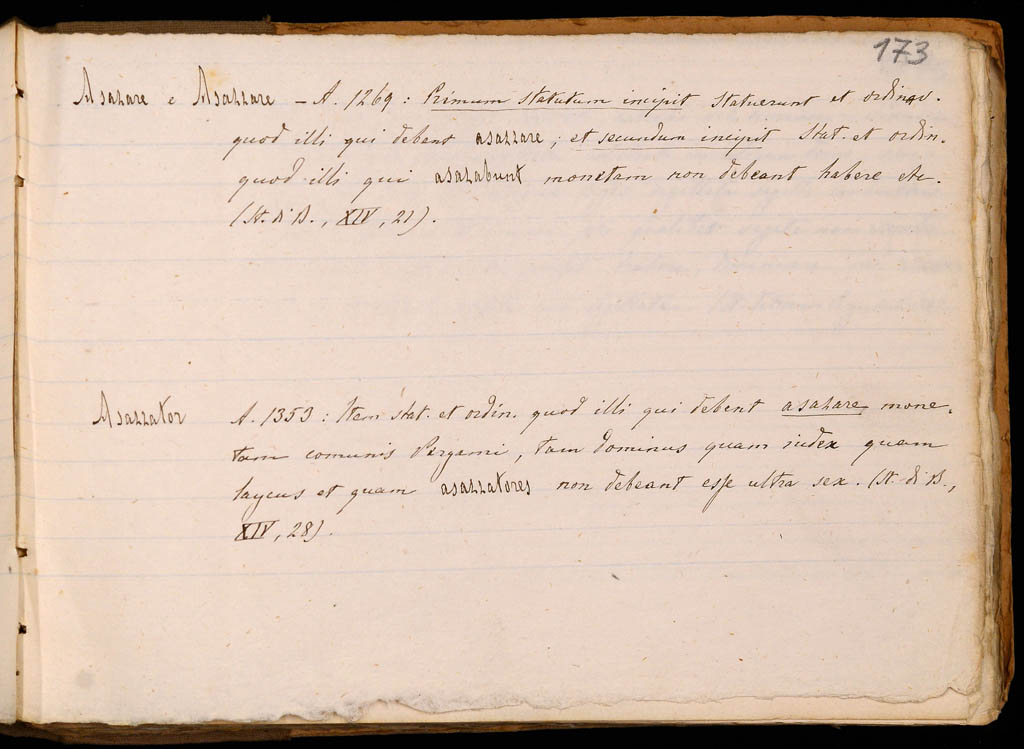 173
Asazare e Asazzare – A. 1269: Primum statutum incipit statuerunt et ordinav.
quod illi qui debent asazzare; et secundum incipit Stat. et ordin.
quod illi qui asazabunt monetam non debeant habere etc.
(St. di B., XIV, 21).
Asazzator A. 1353: Item stat. et ordin. quod illi qui debent asazare mone-
tam comunis Pergami, tam dominus quam iudex quam
laycus et quam asazzatores non debeant esse ultra sex. (St. di B.,
XIV, 28).